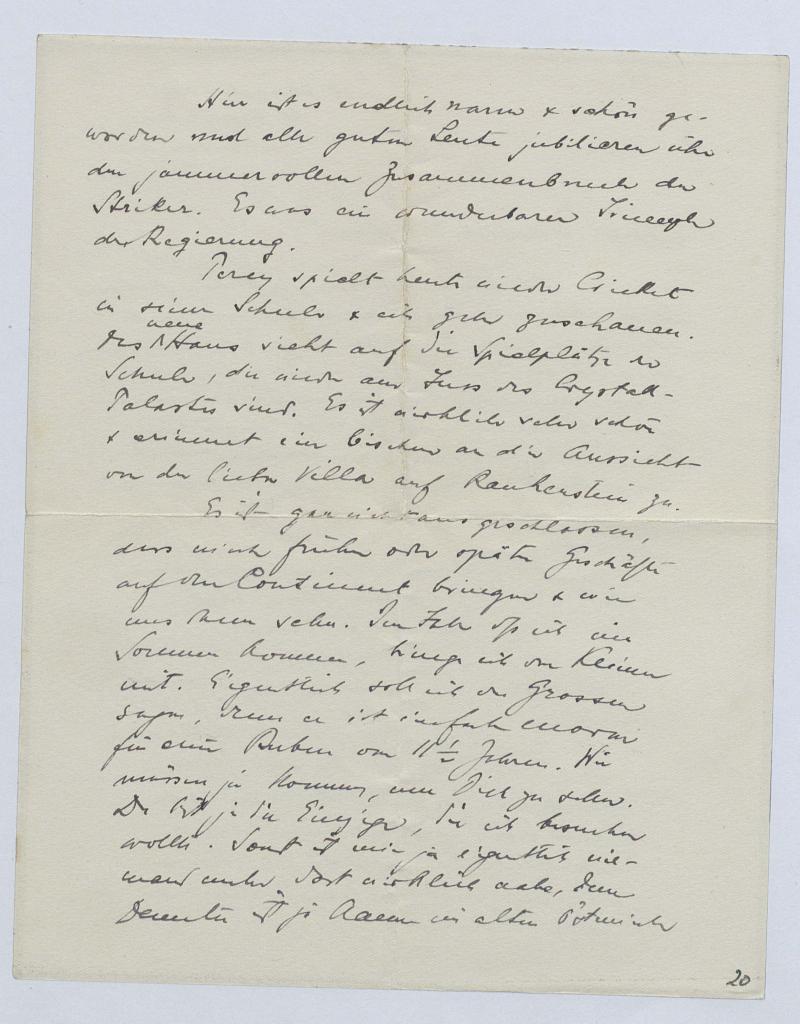 Hier ist es endlich warm & schön ge-
worden und alle guten Leute jubilieren über
den jammervollen Zusammenbruch der
Striker. Es war ein wunderbarer Triumph
der Regierung.
Percy spielt heute wieder Cricket
in seiner Schule & ich gehe zuschauen.
Das neue Haus sieht auf die Spielplätze der
Schule, die wieder am Fuss des Crystall-
Palastes sind. Es ist wirklich sehr schön
& erinnert ein bischen an die Aussicht
von der lieben Villa auf Rauhenstein zu.
Es ist gar nicht ausgeschlossen,
dass mich früher oder später Geschäfte
auf den Continent bringen & wir
uns sehn. Im Falle ich im
Sommer komme, bringe ich den Kleinen
mit. Eigentlich soll ich den Grossen
sagen, denn er ist einfach enorm
für einen Buben von 11½ Jahren. Wir
müssen ja kommen, um Dich zu sehen.
Du bist ja die Einzige, die ich besuchen
wollte. Sonst ist mir ja eigentlich nie-
mand mehr dort wirklich nahe, denn
ist ja kaum im alten Österreich
20